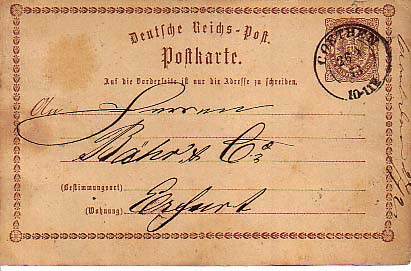 Deutsche Reichs-Post.
Postkarte.
COETHEN
10-11V
Auf die Vorderseite ist nur die Adresse zu schreiben.
An Herren
Bähr & Co
(Bestimmungsort)
(Wohnung) Erfurt